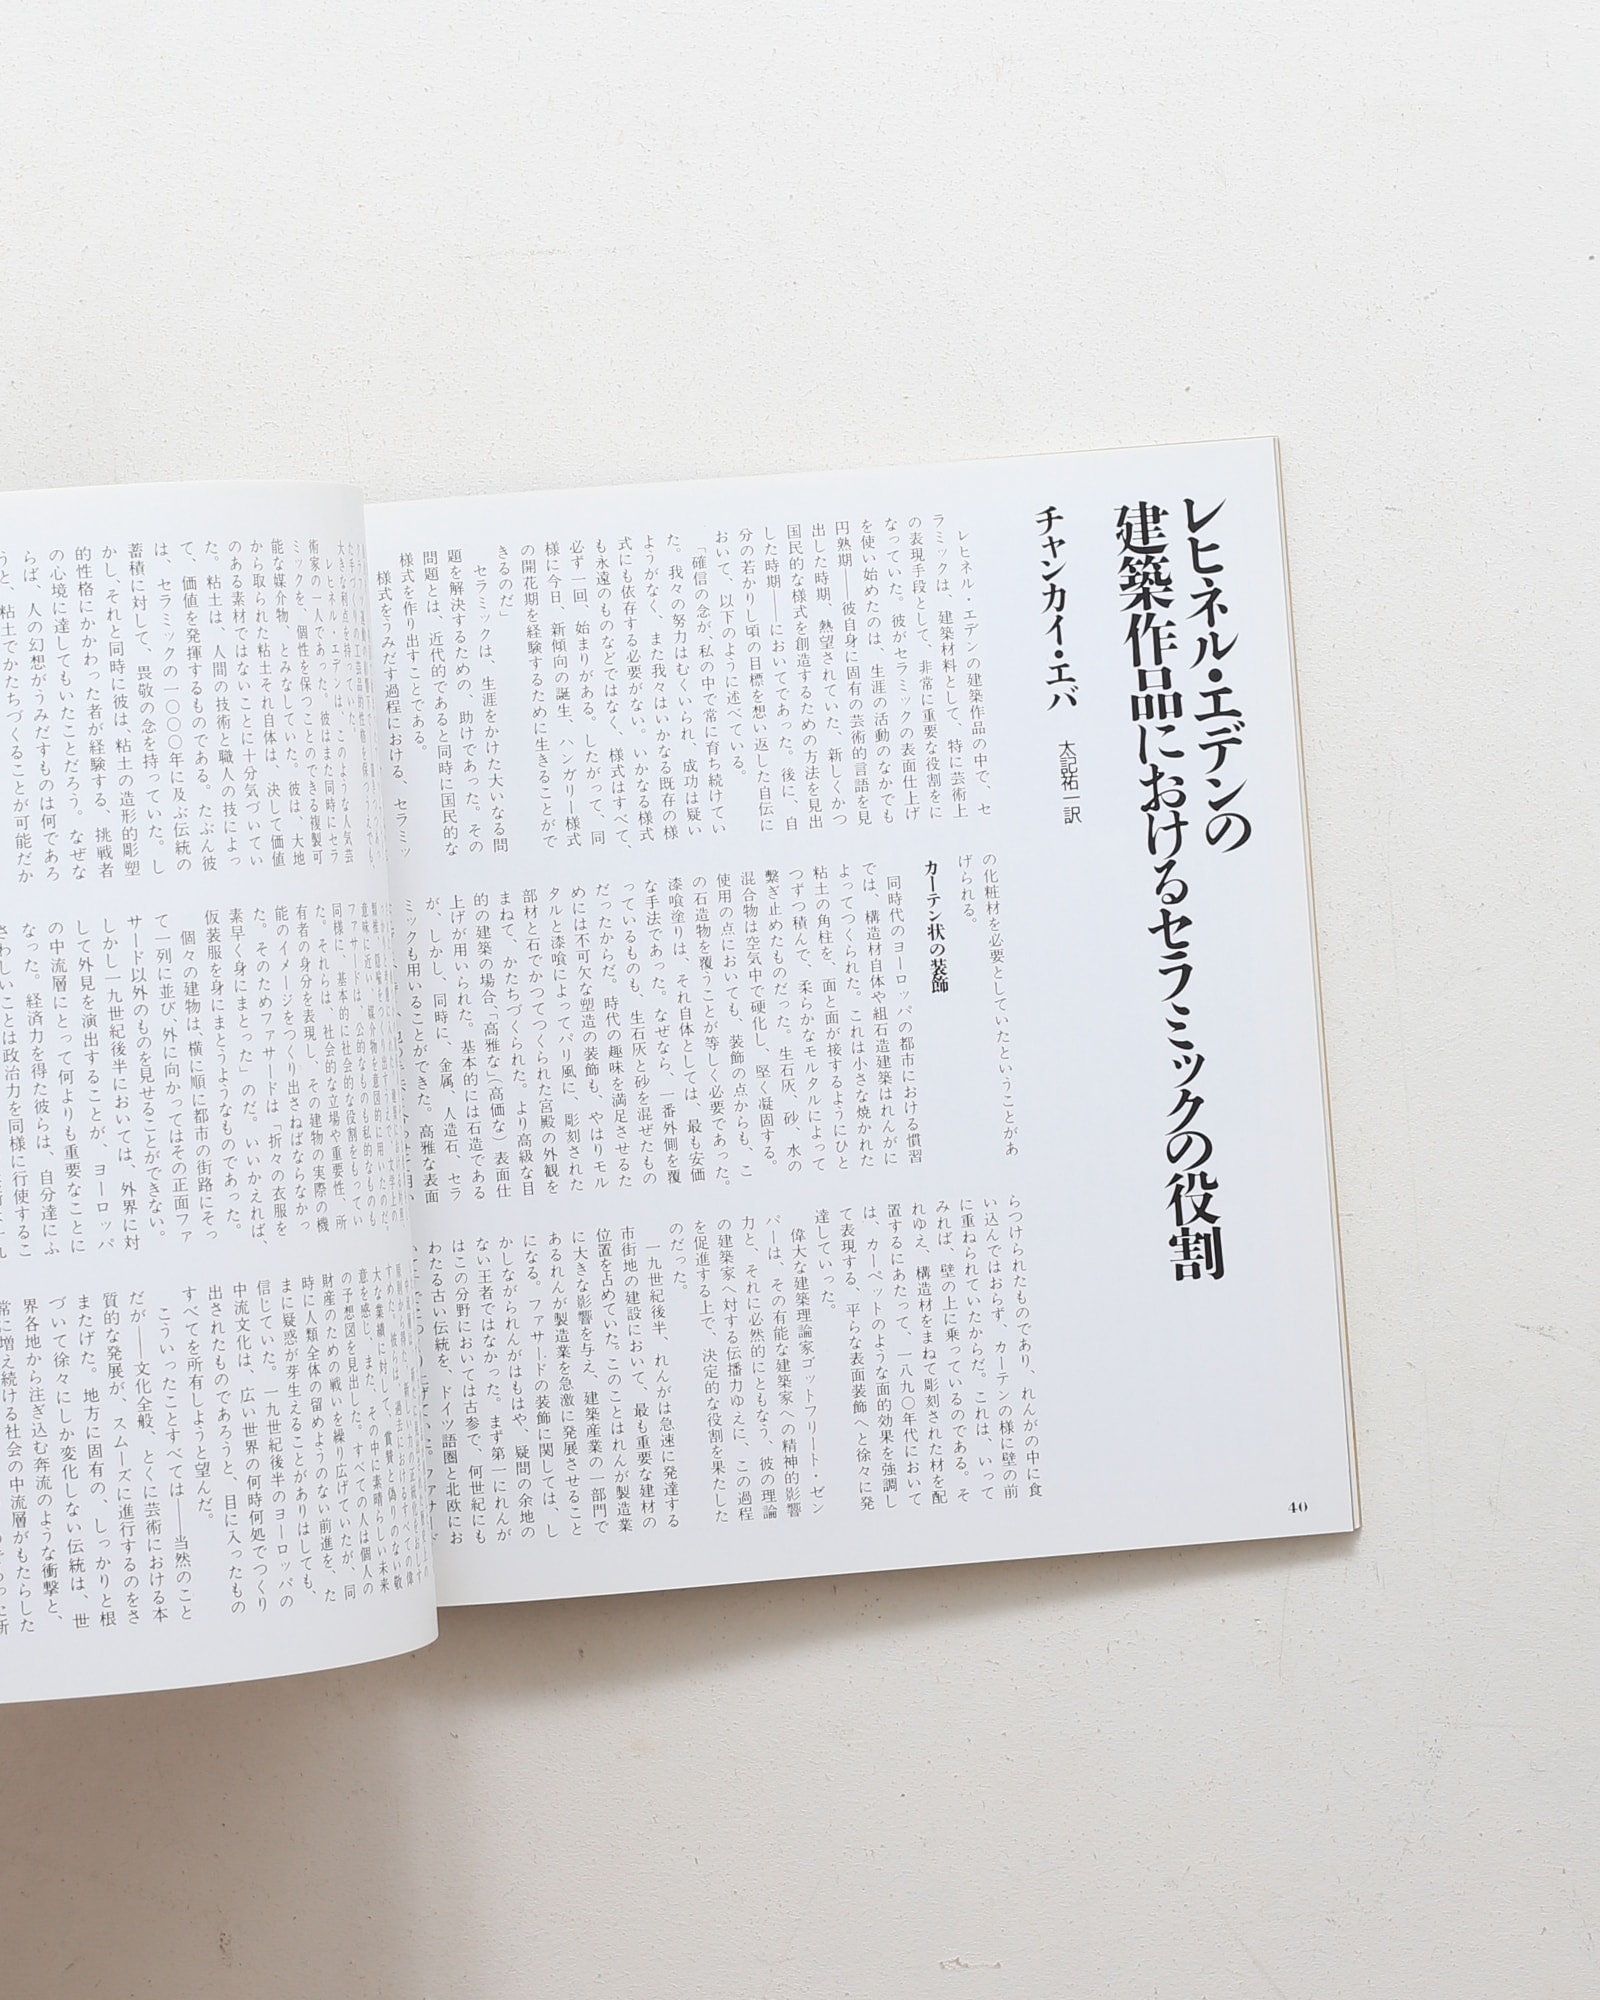 レヒネル・エデンの
建築作品におけるセラミックの役割
チャンカイ・エバ
太記祐一訳
レヒネル・エデンの建築作品の中で、セ
ラミックは、建築材料として、特に芸術上
の表現手段として、非常に重要な役割をに
なっていた。彼がセラミックの表面仕上げ
を使い始めたのは、生涯の活動のなかでも
円熟期――彼自身に固有の芸術的言語を見
出した時期、熱望されていた、新しくかつ
国民的な様式を創造するための方法を見出
した時期――においてであった。後に、自
分の若かりし頃の目標を想い返した自伝に
おいて、以下のように述べている。
「確信の念が、私の中で常に育ち続けてい
た。我々の努力はむくいられ、成功は疑い
ようがなく、また我々はいかなる既存の様
式にも依存する必要がない。いかなる様式
も永遠のものなどではなく、様式はすべて、
必ず一回、始まりがある。したがって、同
様に今日、新傾向の誕生、ハンガリー様式
の開花期を経験するために生きることがで
きるのだ」
セラミックは、生涯をかけた大いなる問
題を解決するための、助けであった。その
問題とは、近代的であると同時に国民的な
様式を作り出すことである。
様式をうみだす過程における、セラミッ
の化粧材を必要としていたということがあ
げられる。
カーテン状の装飾
同時代のヨーロッパの都市における慣習
では、構造材自体や組石造建築はれんがに
よってつくられた。これは小さな焼かれた
粘土の角柱を、面と面が接するようにひと
つずつ積んで、柔らかなモルタルによって
繋ぎ止めたものだった。生石灰、砂、水の
混合物は空気中で硬化し、堅く凝固する。
使用の点においても、装飾の点からも、こ
の石造物を覆うことが等しく必要であった。
漆喰塗りは、それ自体としては、最も安価
な手法であった。なぜなら、一番外側を覆
っているものも、生石灰と砂を混ぜたもの
だったからだ。時代の趣味を満足させるた
めには不可欠な塑造の装飾も、やはりモル
タルと漆喰によってパリ風に、彫刻された
部材と石でかつてつくられた宮殿の外観を
まねて、かたちづくられた。より高級な目
的の建築の場合、「高雅な」(高価な)表面仕
上げが用いられた。基本的には石造である
が、しかし、同時に、金属、人造石、セラ
ミックも用いることができた。高雅な表面
らつけられたものであり、れんがの中に食
い込んではおらず、カーテンの様に壁の前
に重ねられていたからだ。これは、いって
みれば、壁の上に乗っているのである。そ
れゆえ、構造材をまねて彫刻された材を配
置するにあたって、一八九〇年代において
は、カーペットのような面的効果を強調し
て表現する、平らな表面装飾へと徐々に発
達していった。
偉大な建築理論家ゴットフリート・ゼン
パーは、その有能な建築家への精神的影響
力と、それに必然的にともなう、彼の理論
の建築家へ対する伝播力ゆえに、この過程
を促進する上で、決定的な役割を果たした
のだった。
一九世紀後半、れんがは急速に発達する
市街地の建設において、最も重要な建材の
位置を占めていた。このことはれんが製造業
に大きな影響を与え、建築産業の一部門で
あるれんが製造業を急激に発展させること
になる。ファサードの装飾に関しては、し
かしながられんがはもはや、疑問の余地の
ない王者ではなかった。まず第一にれんが
はこの分野においては古参で、何世紀にも
わたる古い伝統を、ドイツ語圏と北欧にお
40
大きな利点を持っていた。
レヒネル・エデンは、このような人気芸
術家の一人であった。彼はまた同時にセラ
ミックを、個性を保つことのできる複製可
能な媒介物、とみなしていた。彼は、大地
から取られた粘土それ自体は、決して価値
のある素材ではないことに十分気づいてい
た。粘土は、人間の技術と職人の技によっ
て、価値を発揮するものである。たぶん彼
は、セラミックの一〇〇〇年に及ぶ伝統の
蓄積に対して、畏敬の念を持っていた。し
かし、それと同時に彼は、粘土の造形的彫塑
的性格にかかわった者が経験する、挑戦者
の心境に達してもいたことだろう。なぜな
らば、人の幻想がうみだすものは何であろ
うと、粘土でかたちづくることが可能だか
意味に近い、媒介物を意図的に用いたのだ。
ファサードは、公的なものも私的なものも
同様に、基本的に社会的な役割をもってい
た。それらは、社会的な立場や重要性、所
有者の身分を表現し、その建物の実際の機
能のイメージをつくり出さねばならなかっ
た。そのためファサードは「折々の衣服を
素早く身にまとった」のだ。いいかえれば、
仮装服を身にまとうようなものであった。
個々の建物は、横に順に都市の街路にそっ
て一列に並び、外に向かってはその正面ファ
サード以外のものを見せることができない。
しかし一九世紀後半においては、外界に対
して外見を演出することが、ヨーロッパ
の中流層にとって何よりも重要なことに
なった。経済力を得た彼らは、自分達にふ
さわしいことは政治力を同様に行使するこ
大な業績に対して、賞賛と偽りのない敬
意を感じ、また、その中に素晴らしい未来
の予想図を見出した。すべての人は個人の
財産のための戦いを繰り広げていたが、同
時に人類全体の留めようのない前進を、た
まに疑惑が芽生えることがありはしても、
信じていた。一九世紀後半のヨーロッパの
中流文化は、広い世界の何時何処でつくり
出されたものであろうと、目に入ったもの
すべてを所有しようと望んだ。
こういったことすべては――当然のこと
だが――文化全般、とくに芸術における本
質的な発展が、スムーズに進行するのをさ
またげた。地方に固有の、しっかりと根
づいて徐々にしか変化しない伝統は、世
界各地から注ぎ込む奔流のような衝撃と、
常に増え続ける社会の中流層がもたらした